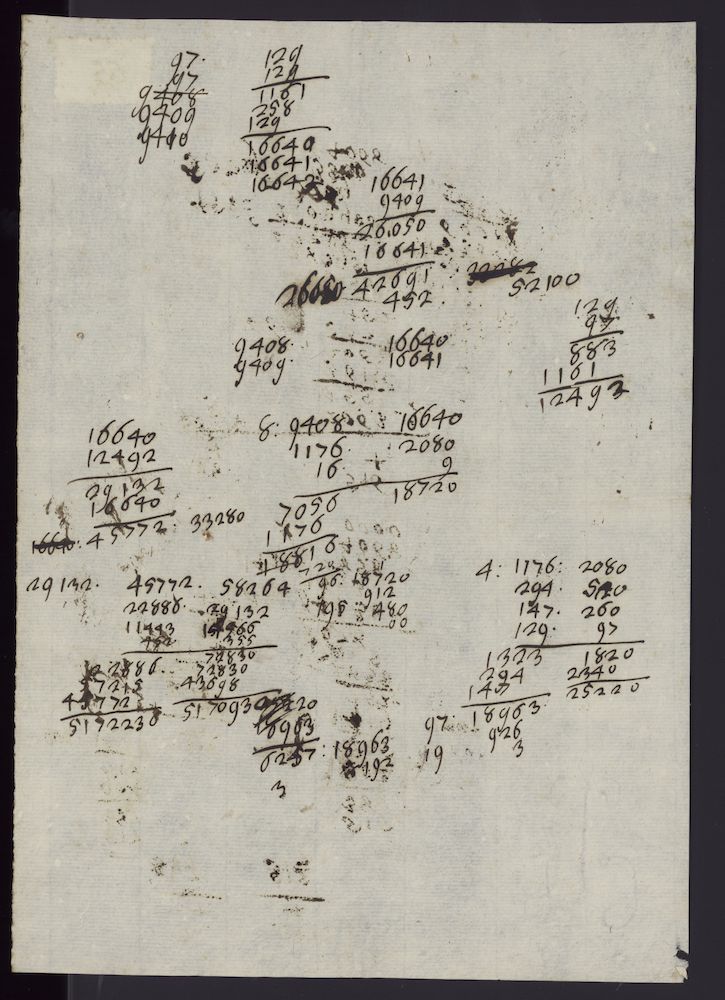 97.
97
9408
9409
9410
129
129
1161
258
129
16640
16641
16642
16641
9409
26,050
16641
42691
452
52100
129
97
883
1161
12493
9408.
9409.
16640
16641
16640
12492
29132
16640
45772.
33280
8. 9408. 16640
1176. 2080
16 9
18720
7056
1176
18816
29132. 45772. 58264
22886. 29132
72830
22886. 72830
43698
45772
5172236
517093
18720
912
480
00
96
4. 1176: 2080
294. 520
147. 260
129. 97
1323 1820
294 2340
147 25220
18963
18963
6257
3
18963
192
97.
926
19
3